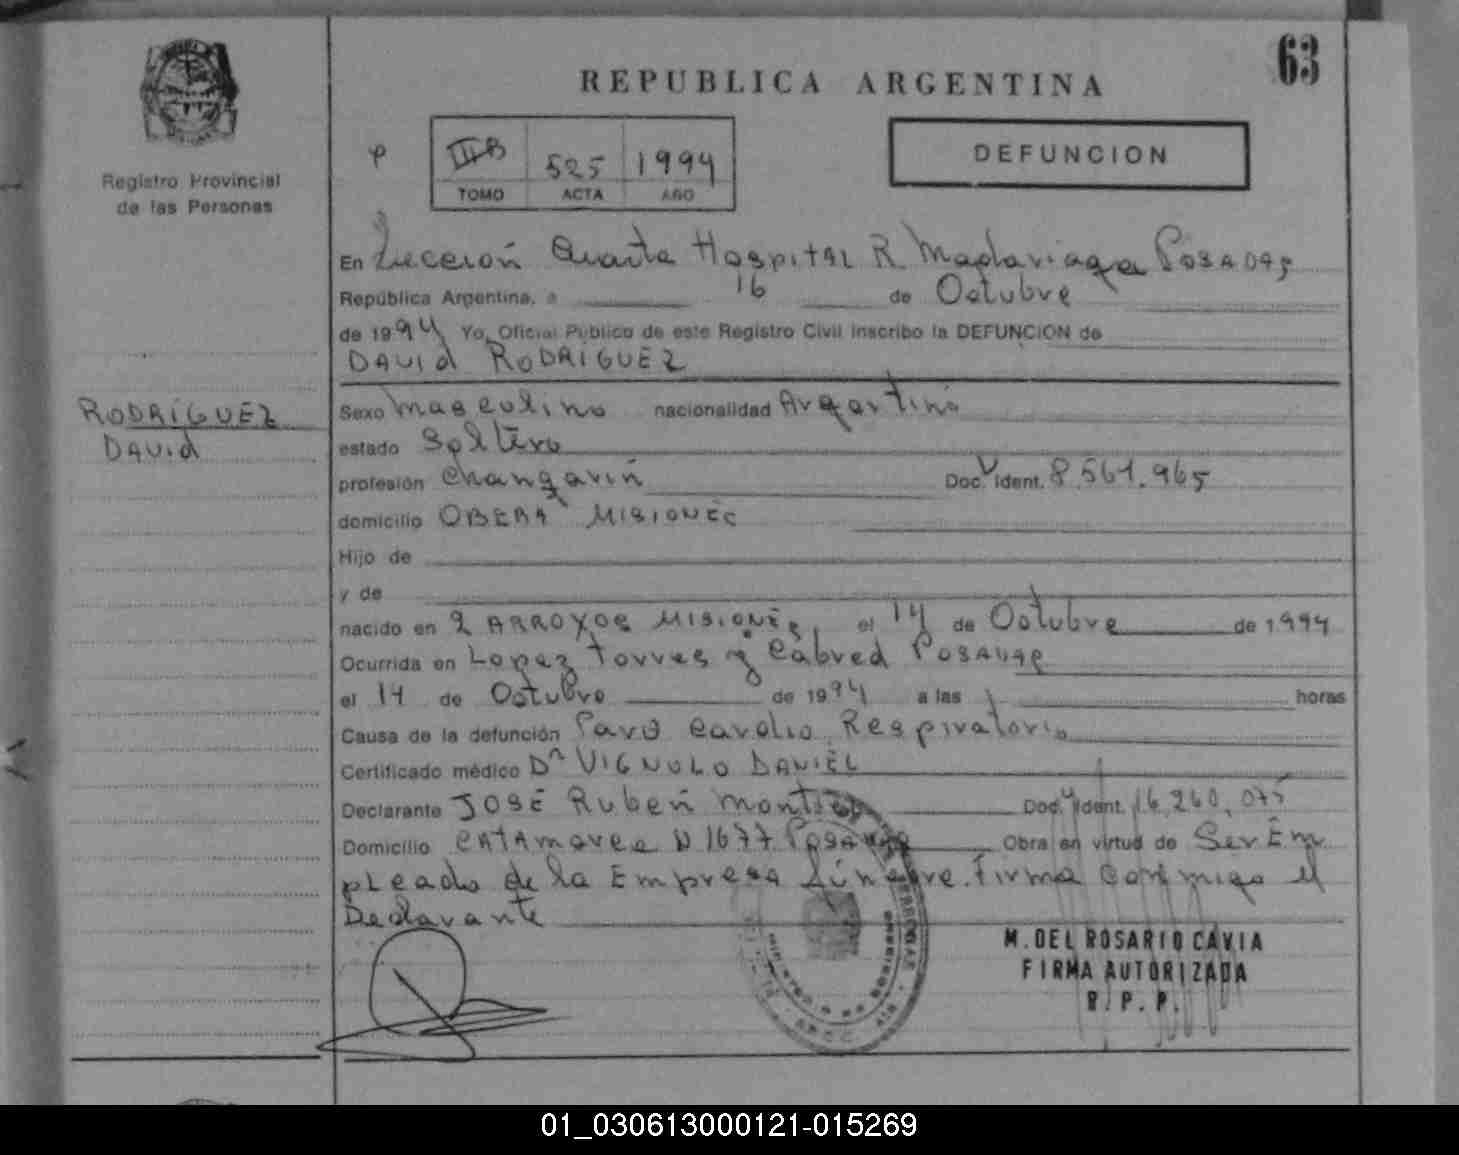 63
REPUBLICA ARGENTINA
IIB 525 1994
TOMO ACTA AÑO
DEFUNCION
Registro Provincial
de las Personas
En Sección Cuarta Hospital R. Madariaga Posadas
República Argentina, a 16 de Octubre
de 1994 Yo, Oficial Público de este Registro Civil inscribo la DEFUNCION de
DAVID RODRIGUEZ
RODRÍGUEZ
DAVid
Sexo masculino nacionalidad Argentino
estado Soltero
profesión changarín Doc. Ident. 8.561.965
domicilio OBERA MISIONES
Hijo de
y de
nacido en 2 ARROYOS MISIONES el 14 de Octubre de 1994
Ocurrida en Lopez Torres y Cabred Posadas
el 14 de Octubre de 1994 a las horas
Causa de la defunción Paro Cardio Respiratorio
Certificado médico Dr VIGNOLO DANIEL
Declarante JOSÉ Rubén Montiel Doc. Ident. 16.260.075
Domicilio CATAmarca N 1677 Posadas Obra en virtud de Ser Em
pleado de la Empresa fúnebre. Firma conmigo el
Declarante
M. DEL ROSARIO CAVIA
FIRMA AUTORIZADA
R. P. P.
01_030613000121-015269